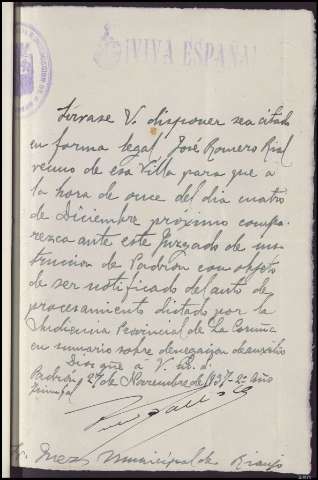 ¡VIVA ESPAÑA!
Sírvase V. disponer sea citado
en forma legal José Romero Rial
vecino de esa Villa para que a
la hora de once del dia cuatro
de Diciembre próximo compa-
rezca ante este Juzgado de ins-
trucción de Padrón con objeto
de ser notificado del auto de
procesamiento dictado por la
Audiencia Provincial de La Coruña
en sumario sobre denegación de auxilio
Dios gue a V. m. a.
Padrón 27 de Noviembre de 1937 - 2º Año
Triunfal
Sr. Juez Municipal de